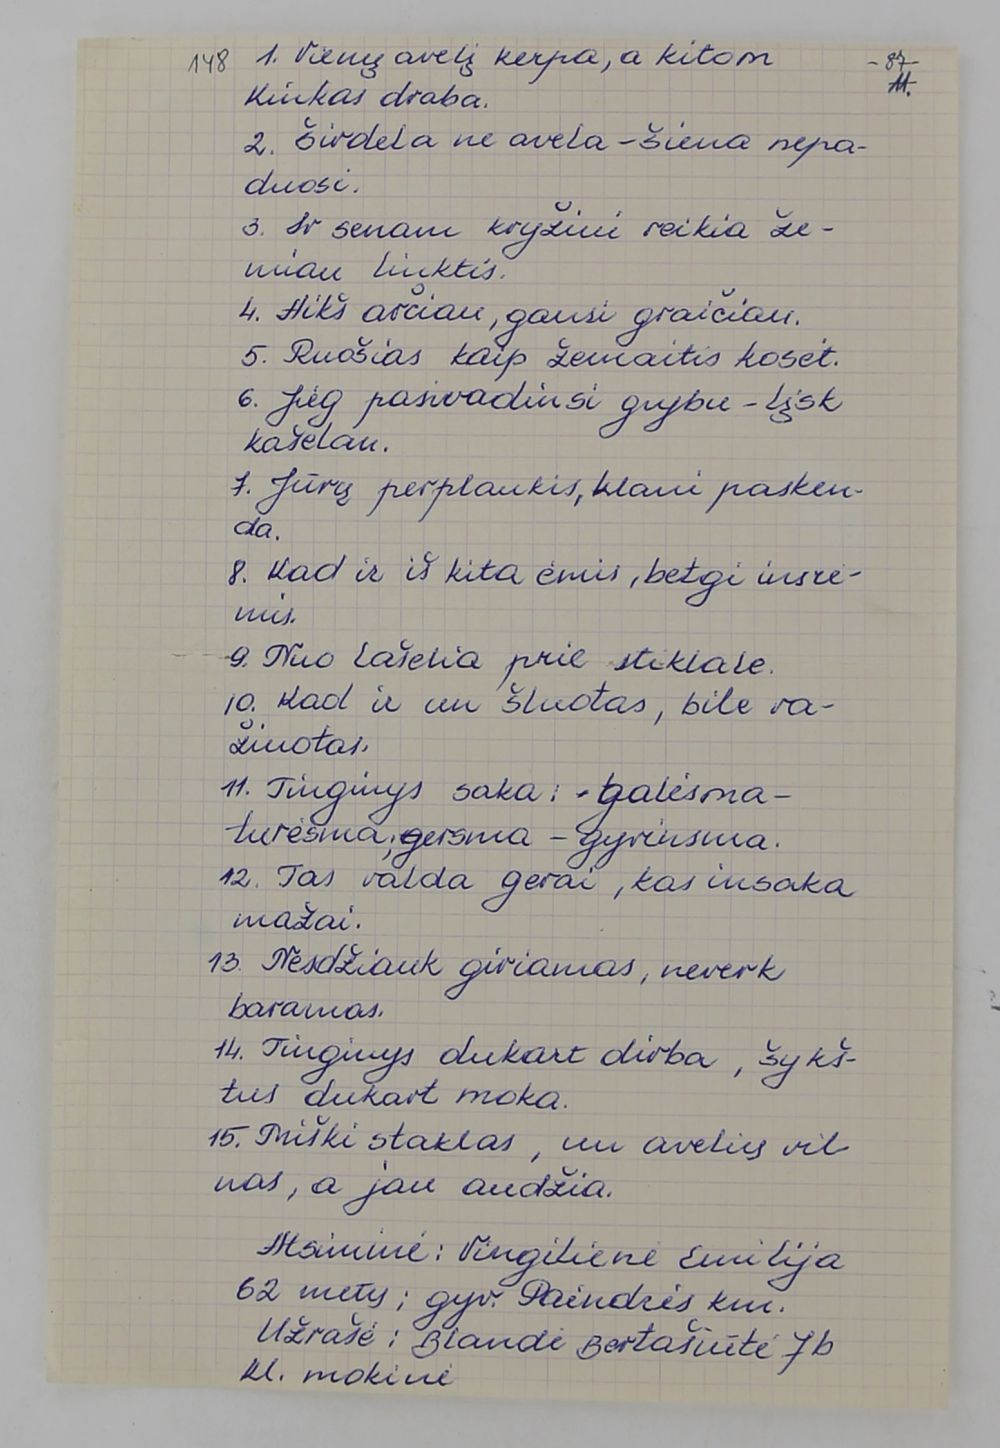 148 1. Vieną avelį kerpa, a kitom -87-
kinkas draba. M.
2. Širdela ne avela – šiena nepa-
duosi.
3. Ir senam kryžini reikia že-
miau linktis.
4. Aikš arčiau, gausi graičiau.
5. Ruošias kaip žemaitis koset.
6. Jėg pasivadinsi grybu – lįsk
kašelan.
7. Jūrų perplaukis, klani pasken-
da.
8. Kad ir iš kita ėmis, betgi insrė-
mis.
9. Nuo lašelia prie stiklale.
10. Kad ir un šluotas, bile ra-
žinotas.
11. Tinginys saka: - galėsma -
turėsma, gersma – gyvensma.
12. Tas valda gerai, kas insaka
mažai.
13. Nesdžiauk giriamas, neverk
baramas.
14. Tinginys dukart dirba, šykš-
tus dukart moka.
15. Miški staklas, un avelių vil
nas, a jau audžia.
Atsiminė: Vingilienė Emilija
62 metų; gyv. Paindrės km.
Užrašė: Blandė Bertašiūtė 7b
kl. mokinė